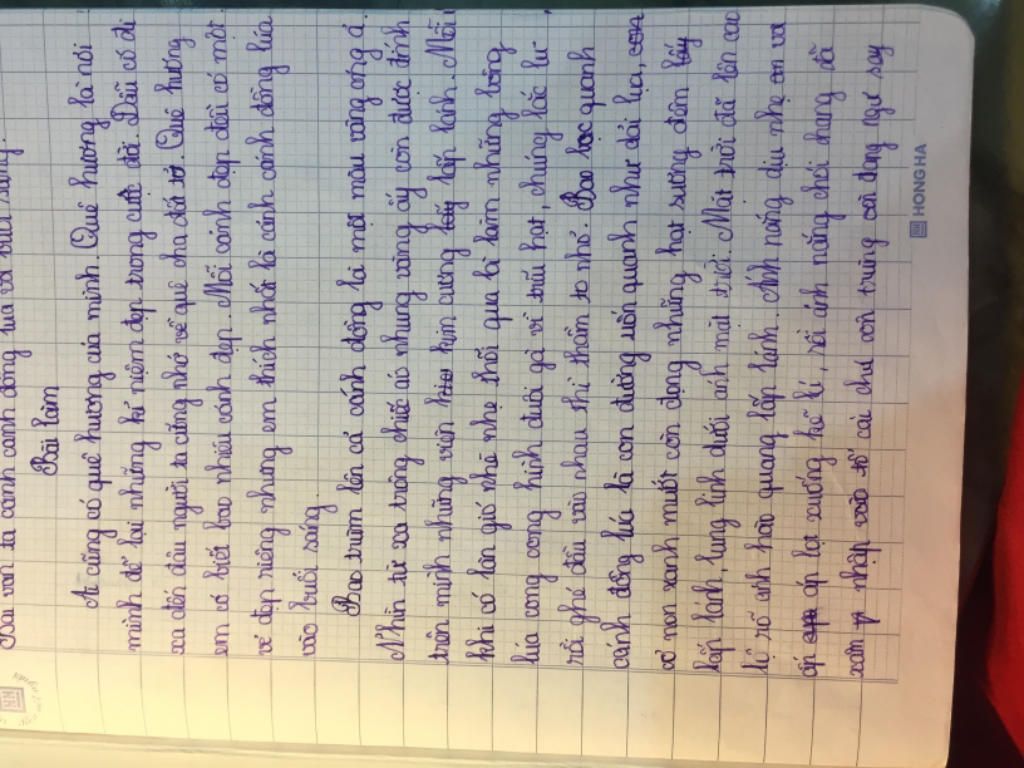 Bài văn tả cánh đồng lúa vào buổi sáng.
Bài làm
Ai cũng có quê hương của mình. Quê hương là nơi
mình để lại những kỉ niệm đẹp trong cuộc đời. Dẫu có đi
xa đến đâu người ta cũng nhớ về quê cha đất tổ. Quê hương
em có biết bao nhiêu cảnh đẹp. Mỗi cảnh đẹp đều có một
vẻ đẹp riêng nhưng em thích nhất là cảnh cánh đồng lúa
vào buổi sáng.
Bao trùm lên cả cánh đồng là một màu vàng óng ả.
Nhìn từ xa trông chiếc áo nhung vàng ấy còn được đính
trên mình những viên kim cương lấp lánh. Mỗi
khi có làn gió nhè nhẹ thổi qua là làm những bông
lúa cong cong hình đuôi gà vì trĩu hạt, chúng lắc lư
rồi ghé đầu vào nhau thì thầm to nhỏ. Bao bọc quanh
cánh đồng lúa là con đường uốn quanh như dải lụa,
cỏ non xanh mướt còn đọng những hạt sương đêm
lấp lánh, lung linh dưới ánh mặt trời. Mặt trời đã lên cao
lộ rõ ánh hào quang lấp lánh. Ánh nắng dịu nhẹ và
ấm áp lọt xuống kẽ lá, rồi ánh nắng chói chang đã
xâm nhập vào tổ cái chú côn trùng còn đang ngủ say
HONGHA